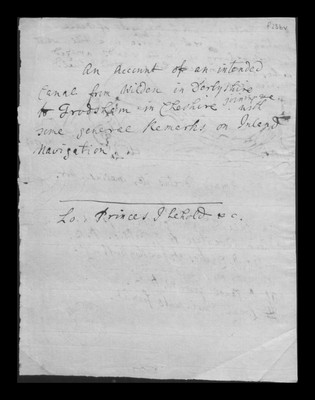 An Account of an intended
Canal from Wilden in Derbyshire
to Frodsham in Cheshire with
some general Remarks on Inland
Navigation &c
Lo. Princes I behold &c.